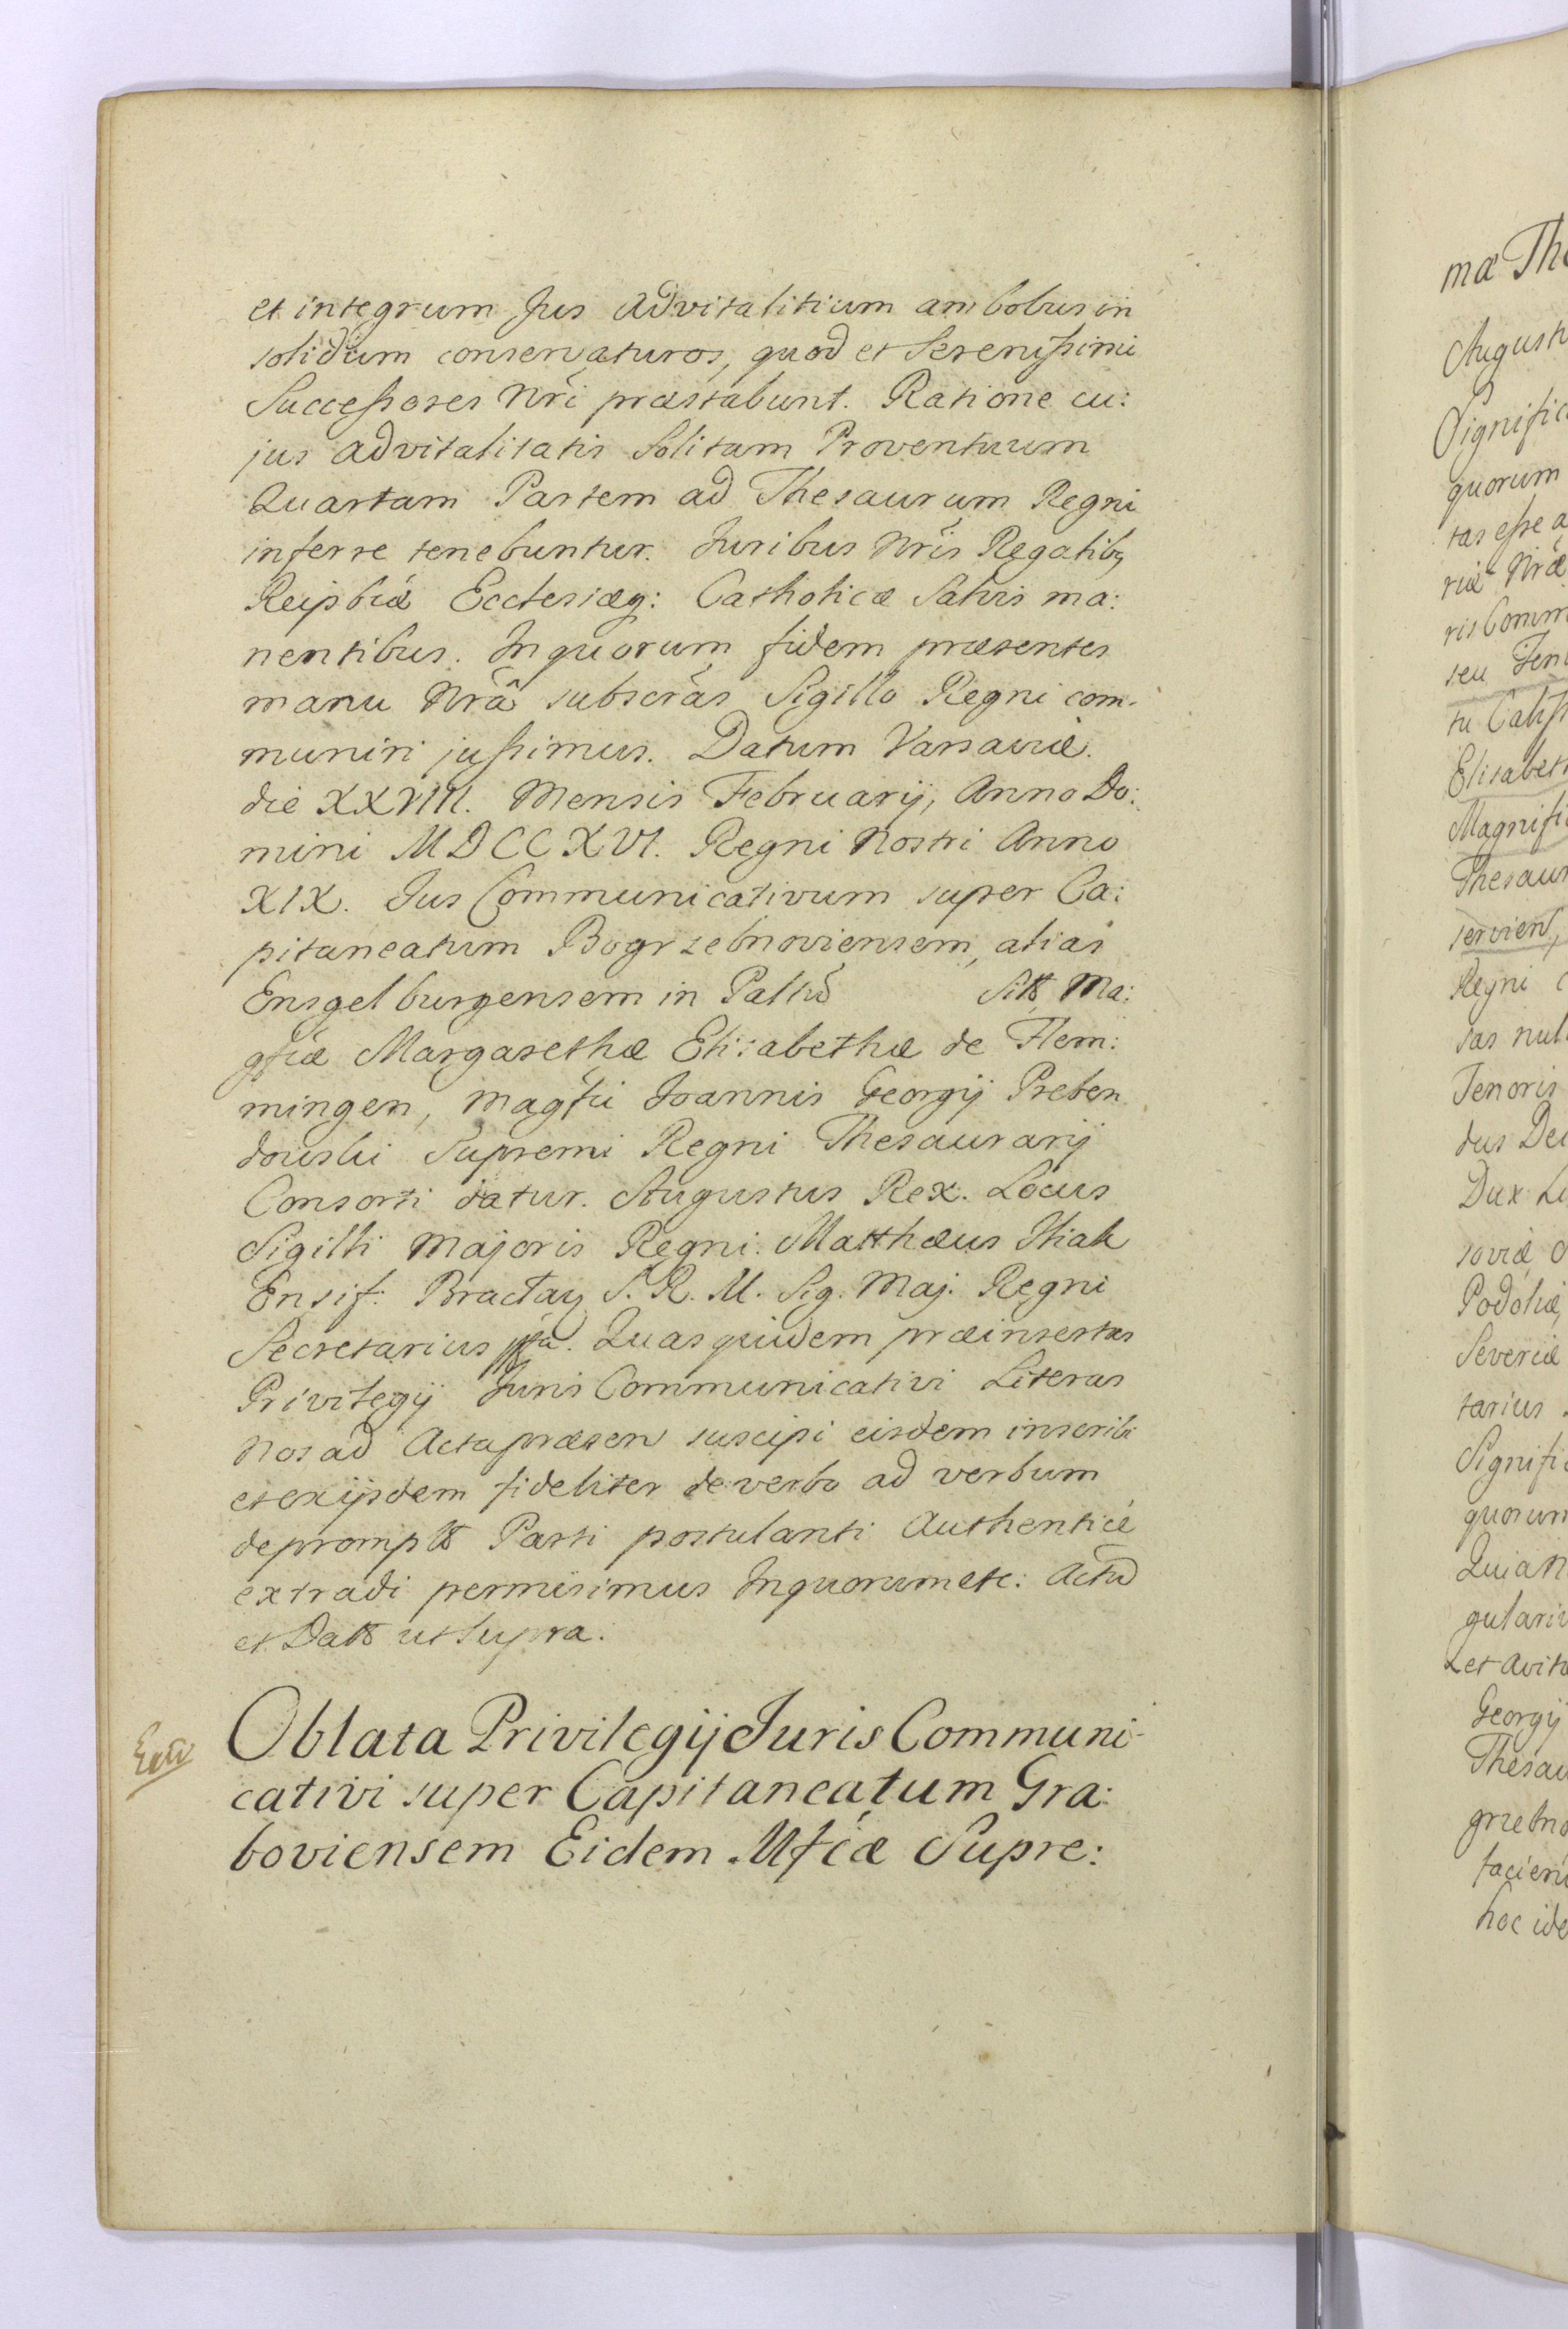 et integrum Jus Advitalitium ambobus in
solidum conservaturos, quod et Serenissimi
Successores Nri præstabunt. Ratione cu:
jus advitalitatis Solitam Proventuum
Quartam Partem ad Thesaurum Regni
inferre tenebuntur. Juribus Nris Regalibq
Reipbcæ Ecclesiæq: Catholicæ Salvis ma:
nentibus. In quorum fidem præsentes
manu Nrâ subscras Sigillo Regni com-
muniri jussimus. Datum Varsaviæ.
die XXVIII. Mensis Februarij, Anno Do:
mini MDCCXVI. Regni Nostri Anno
XIX. Jus Communicativum super Ca:
pitaneatum Bogrzebnoviensem, alias
Ensgelburgensem in Palltu Sitt Ma:
gfcæ Margarethæ Elisabethæ de Flem:
mingen, Magfci Joannis Georgij Preben
dowski Supremi Regni Thesaurarij
Consorti datur. Augustus Rex. Locus
Sigilli Majoris Regni. Matthæus
Ensif: Braclaz S. R. M. Sig. Maj. Regni
Secretarius Quas quidem præinsertas
Privilegij Juris Communicativi Literas
Nos ad Acta præsen suscipi eisdem inscribi
et ex ijsdem fideliter de verbo ad verbum
deprompt Parti postulanti Authenticè
extradi permisimus In quorum etc: Actu
et Datt ut supra.
Oblata Privilegij Juris Communi-
cativi super Capitaneatum Gra:
boviensem Eidem Mfcæ Supre:
mæ The
Augusti
Significa
quorum
tas esse a
riæ Nræ
ris Comm
seu Ten
tu Caliss
Elisabeth
Magnifi
Thesaur
servien,
Regni c
sas nul
Tenoris
dus Dei
Dux Li
soviæ,
Podoliæ,
Severiæ
tarius
Signific
quorum
Quia N
gulari
et avit
Georgij
Thesau
grzebno
facien
hoc ide